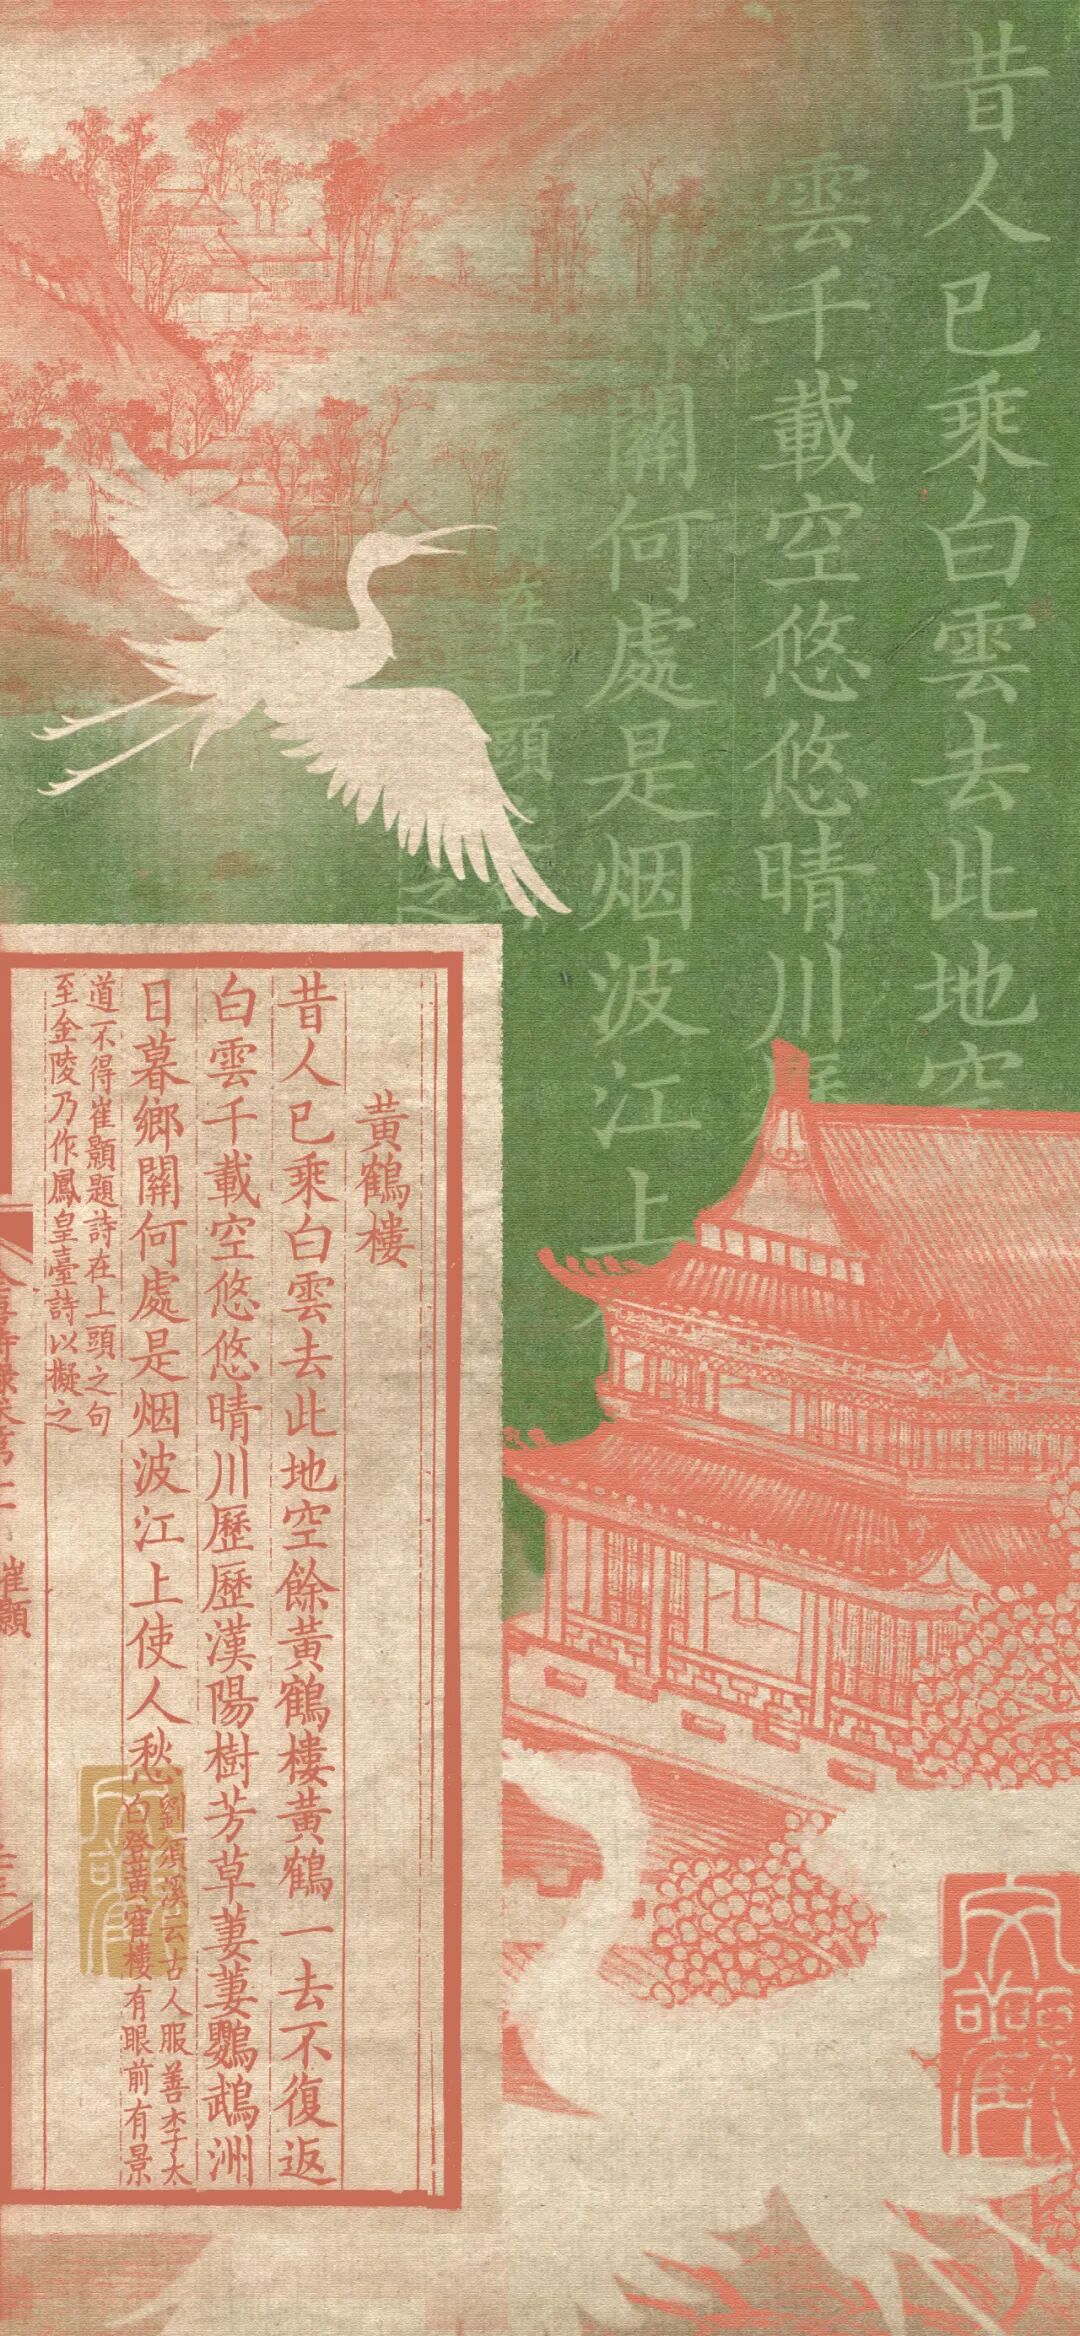 昔人已乘白雲去此地空
雲千載空悠悠晴川歷
關何處是烟波江上
在上頭之
之
黃鶴樓
昔人已乘白雲去此地空餘黃鶴樓黃鶴一去不復返
白雲千載空悠悠晴川歷歷漢陽樹芳草萋萋鸚鵡洲
日暮鄉關何處是烟波江上使人愁
劉須溪云古人服善李太
白登黃寉樓有眼前有景
道不得崔顥題詩在上頭之句
至金陵乃作鳳皇臺詩以擬之
崔顥